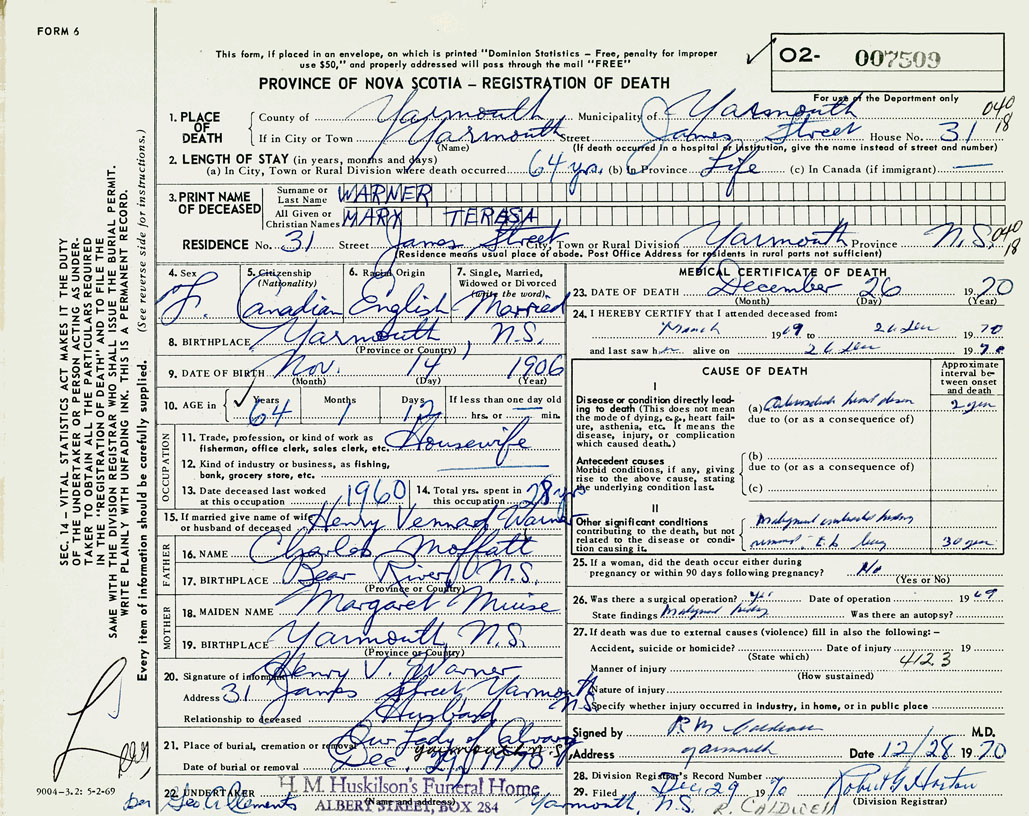 FORM 6
This form, if placed in an envelope, on which is printed "Dominion Statistics – Free, penalty for improper
use $50," and properly addressed will pass through the mail "FREE"
O2- 007509
For use of the Department only
PROVINCE OF NOVA SCOTIA – REGISTRATION OF DEATH
040
18
1. PLACE OF DEATH
County of Yarmouth Municipality of Yarmouth
If in City or Town Yarmouth Street James Street House No. 31
(Name) (If death occurred in a hospital or institution, give the name instead of street and number)
2. LENGTH OF STAY (in years, months and days)
(a) In City, Town or Rural Division where death occurred 64 yrs. (b) In Province Life (c) In Canada (if immigrant) —
3. PRINT NAME OF DECEASED
Surname or Last Name WARNER
All Given or Christian Names MARY TERASA
RESIDENCE No. 31 Street James Street City, Town or Rural Division Yarmouth Province N.S. 040 18
(Residence means usual place of abode. Post Office Address for residents in rural parts not sufficient)
4. Sex F.
5. Citizenship (Nationality) Canadian
6. Racial Origin English
7. Single, Married, Widowed or Divorced (write the word) Married
8. BIRTHPLACE Yarmouth, N.S.
(Province or Country)
9. DATE OF BIRTH Nov. 14 1906
(Month) (Day) (Year)
10. AGE in Years 64 Months 1 Days 12 If less than one day old
hrs. or min.
OCCUPATION
11. Trade, profession, or kind of work as
fisherman, office clerk, sales clerk, etc. Housewife
12. Kind of industry or business, as fishing,
bank, grocery store, etc.
13. Date deceased last worked
at this occupation 1960
14. Total yrs. spent in
this occupation 28 yrs
15. If married give name of wife
or husband of deceased Henry Vennard Warner
FATHER
16. NAME Charles Moffatt
17. BIRTHPLACE Bear River, N.S.
(Province or Country)
MOTHER
18. MAIDEN NAME Margaret Muise
19. BIRTHPLACE Yarmouth, N.S.
(Province or Country)
20. Signature of informant Henry V. Warner
Address 31 James Street Yarmouth N.S.
Relationship to deceased Husband
21. Place of burial, cremation or removal Our Lady of Calvary
Yarmouth N.S.
Date of burial or removal Dec 29/1970
22. UNDERTAKER
(Name and address)
H. M. Huskilson's Funeral Home
ALBERT STREET, BOX 284
Yarmouth, N.S.
MEDICAL CERTIFICATE OF DEATH
23. DATE OF DEATH December 26 1970
(Month) (Day) (Year)
24. I HEREBY CERTIFY that I attended deceased from:
March 1969 to 26 Dec 1970
and last saw her alive on 26 Dec 1970
CAUSE OF DEATH
Approximate interval between onset and death
I
Disease or condition directly leading to death (This does not mean the mode of dying, e.g., heart failure, asthenia, etc. It means the disease, injury, or complication which caused death.)
(a) heart disease 2 years
due to (or as a consequence of)
Antecedent causes
Morbid conditions, if any, giving rise to the above cause, stating the underlying condition last.
(b)
due to (or as a consequence of)
(c)
II
Other significant conditions contributing to the death, but not related to the disease or condition causing it.
Malignant kidney
removed. T.b. lung 30 years
25. If a woman, did the death occur either during
pregnancy or within 90 days following pregnancy? No
(Yes or No)
26. Was there a surgical operation? Yes Date of operation 1969
State findings Malignant kidney Was there an autopsy?
27. If death was due to external causes (violence) fill in also the following: –
Accident, suicide or homicide? Date of injury 19
(State which) 4123
Manner of injury
(How sustained)
Nature of injury
Specify whether injury occurred in industry, in home, or in public place
Signed by M.D.
Address Yarmouth Date 12/28 1970
28. Division Registrar's Record Number
29. Filed Dec. 29 1970 Robert G. Horton
(Division Registrar)
R. CALDWELL
SEC. 14 – VITAL STATISTICS ACT MAKES IT THE DUTY
OF THE UNDERTAKER OR PERSON ACTING AS UNDER-
TAKER TO OBTAIN ALL THE PARTICULARS REQUIRED
IN THE "REGISTRATION OF DEATH" AND TO FILE THE
SAME WITH THE DIVISION REGISTRAR WHO SHALL ISSUE THE BURIAL PERMIT.
WRITE PLAINLY WITH UNFADING INK. THIS IS A PERMANENT RECORD.
Every item of information should be carefully supplied. (See reverse side for instructions.)
9004-3.2: 5-2-69